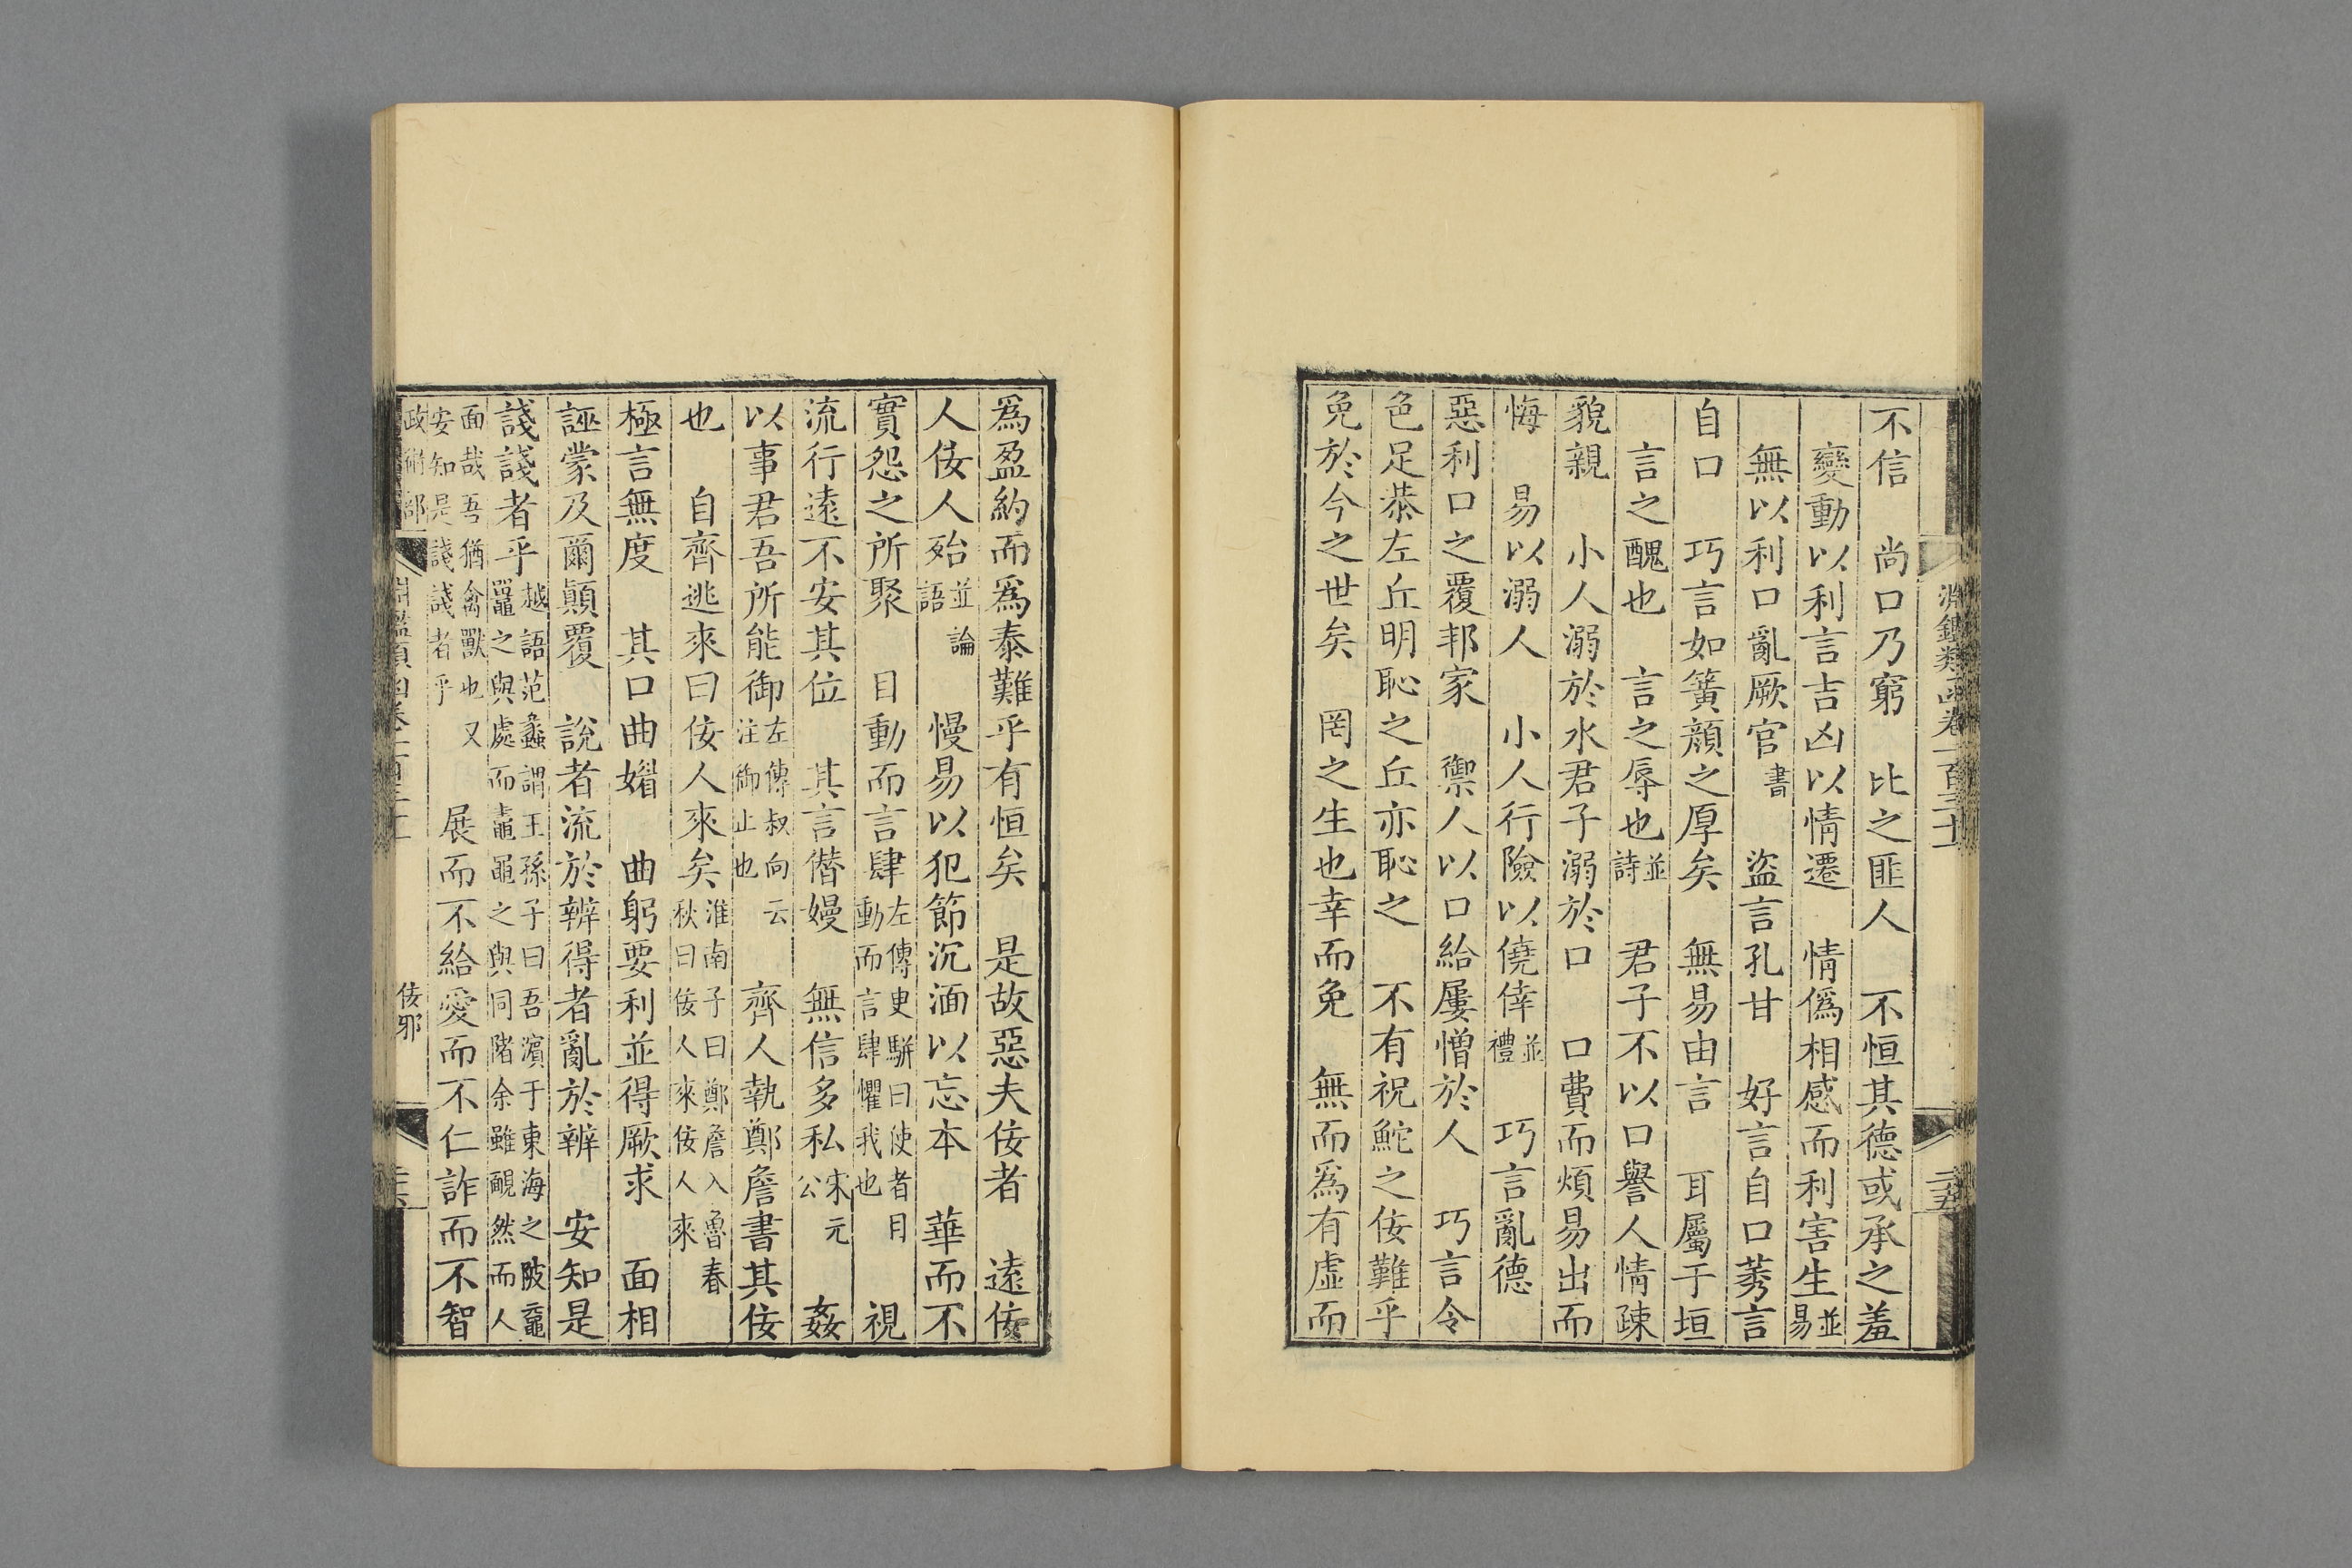 淵鑑類函卷一百三十
二十五
不信　尚口乃窮　比之匪人　不恒其德或承之羞
變動以利言吉凶以情遷　情僞相感而利害生並易
無以利口亂厥官書　盜言孔甘　好言自口莠言
自口　巧言如簧顏之厚矣　無易由言　耳屬于垣
言之醜也　言之辱也並詩　君子不以口譽人情疎
貌親　小人溺於水君子溺於口　口費而煩易出而
悔　易以溺人　小人行險以僥倖並禮　巧言亂德
惡利口之覆邦家　禦人以口給屢憎於人　巧言令
色足恭左丘明恥之丘亦恥之　不有祝鮀之佞難乎
免於今之世矣　罔之生也幸而免　無而爲有虛而
爲盈約而爲泰難乎有恒矣　是故惡夫佞者　遠佞
人佞人殆並論語　慢易以犯節沉湎以忘本　華而不
實怨之所聚　目動而言肆左傳史騈曰使者目動而言肆懼我也　視
流行遠不安其位　其言僭嫚　無信多私宋元公　姦
以事君吾所能御左傳叔向云注御止也　齊人執鄭詹書其佞
也　自齊逃來曰佞人來矣淮南子曰鄭詹入魯春秋曰佞人來佞人來
極言無度　其口曲媚　曲躬要利並得厥求　面相
誣蒙及爾顚覆　說者流於辨得者亂於辨　安知是
諓諓者乎越語范蠡謂王孫子曰吾濵于東海之陂黿鼉之與處而鼃黽之與同陼余雖靦然而人
面哉吾猶禽獸也又安知是諓諓者乎　展而不給愛而不仁詐而不智
政術部
佞邪